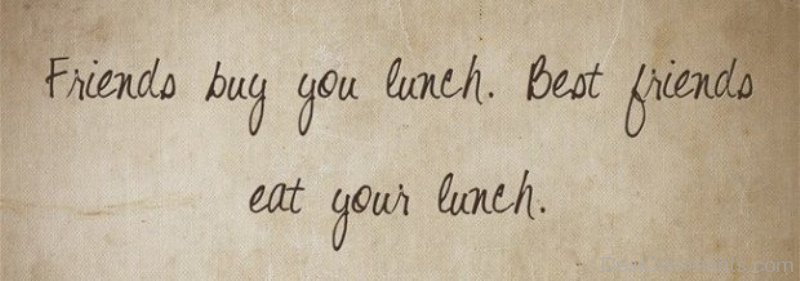 Friends buy you lunch. Best friends
eat your lunch.